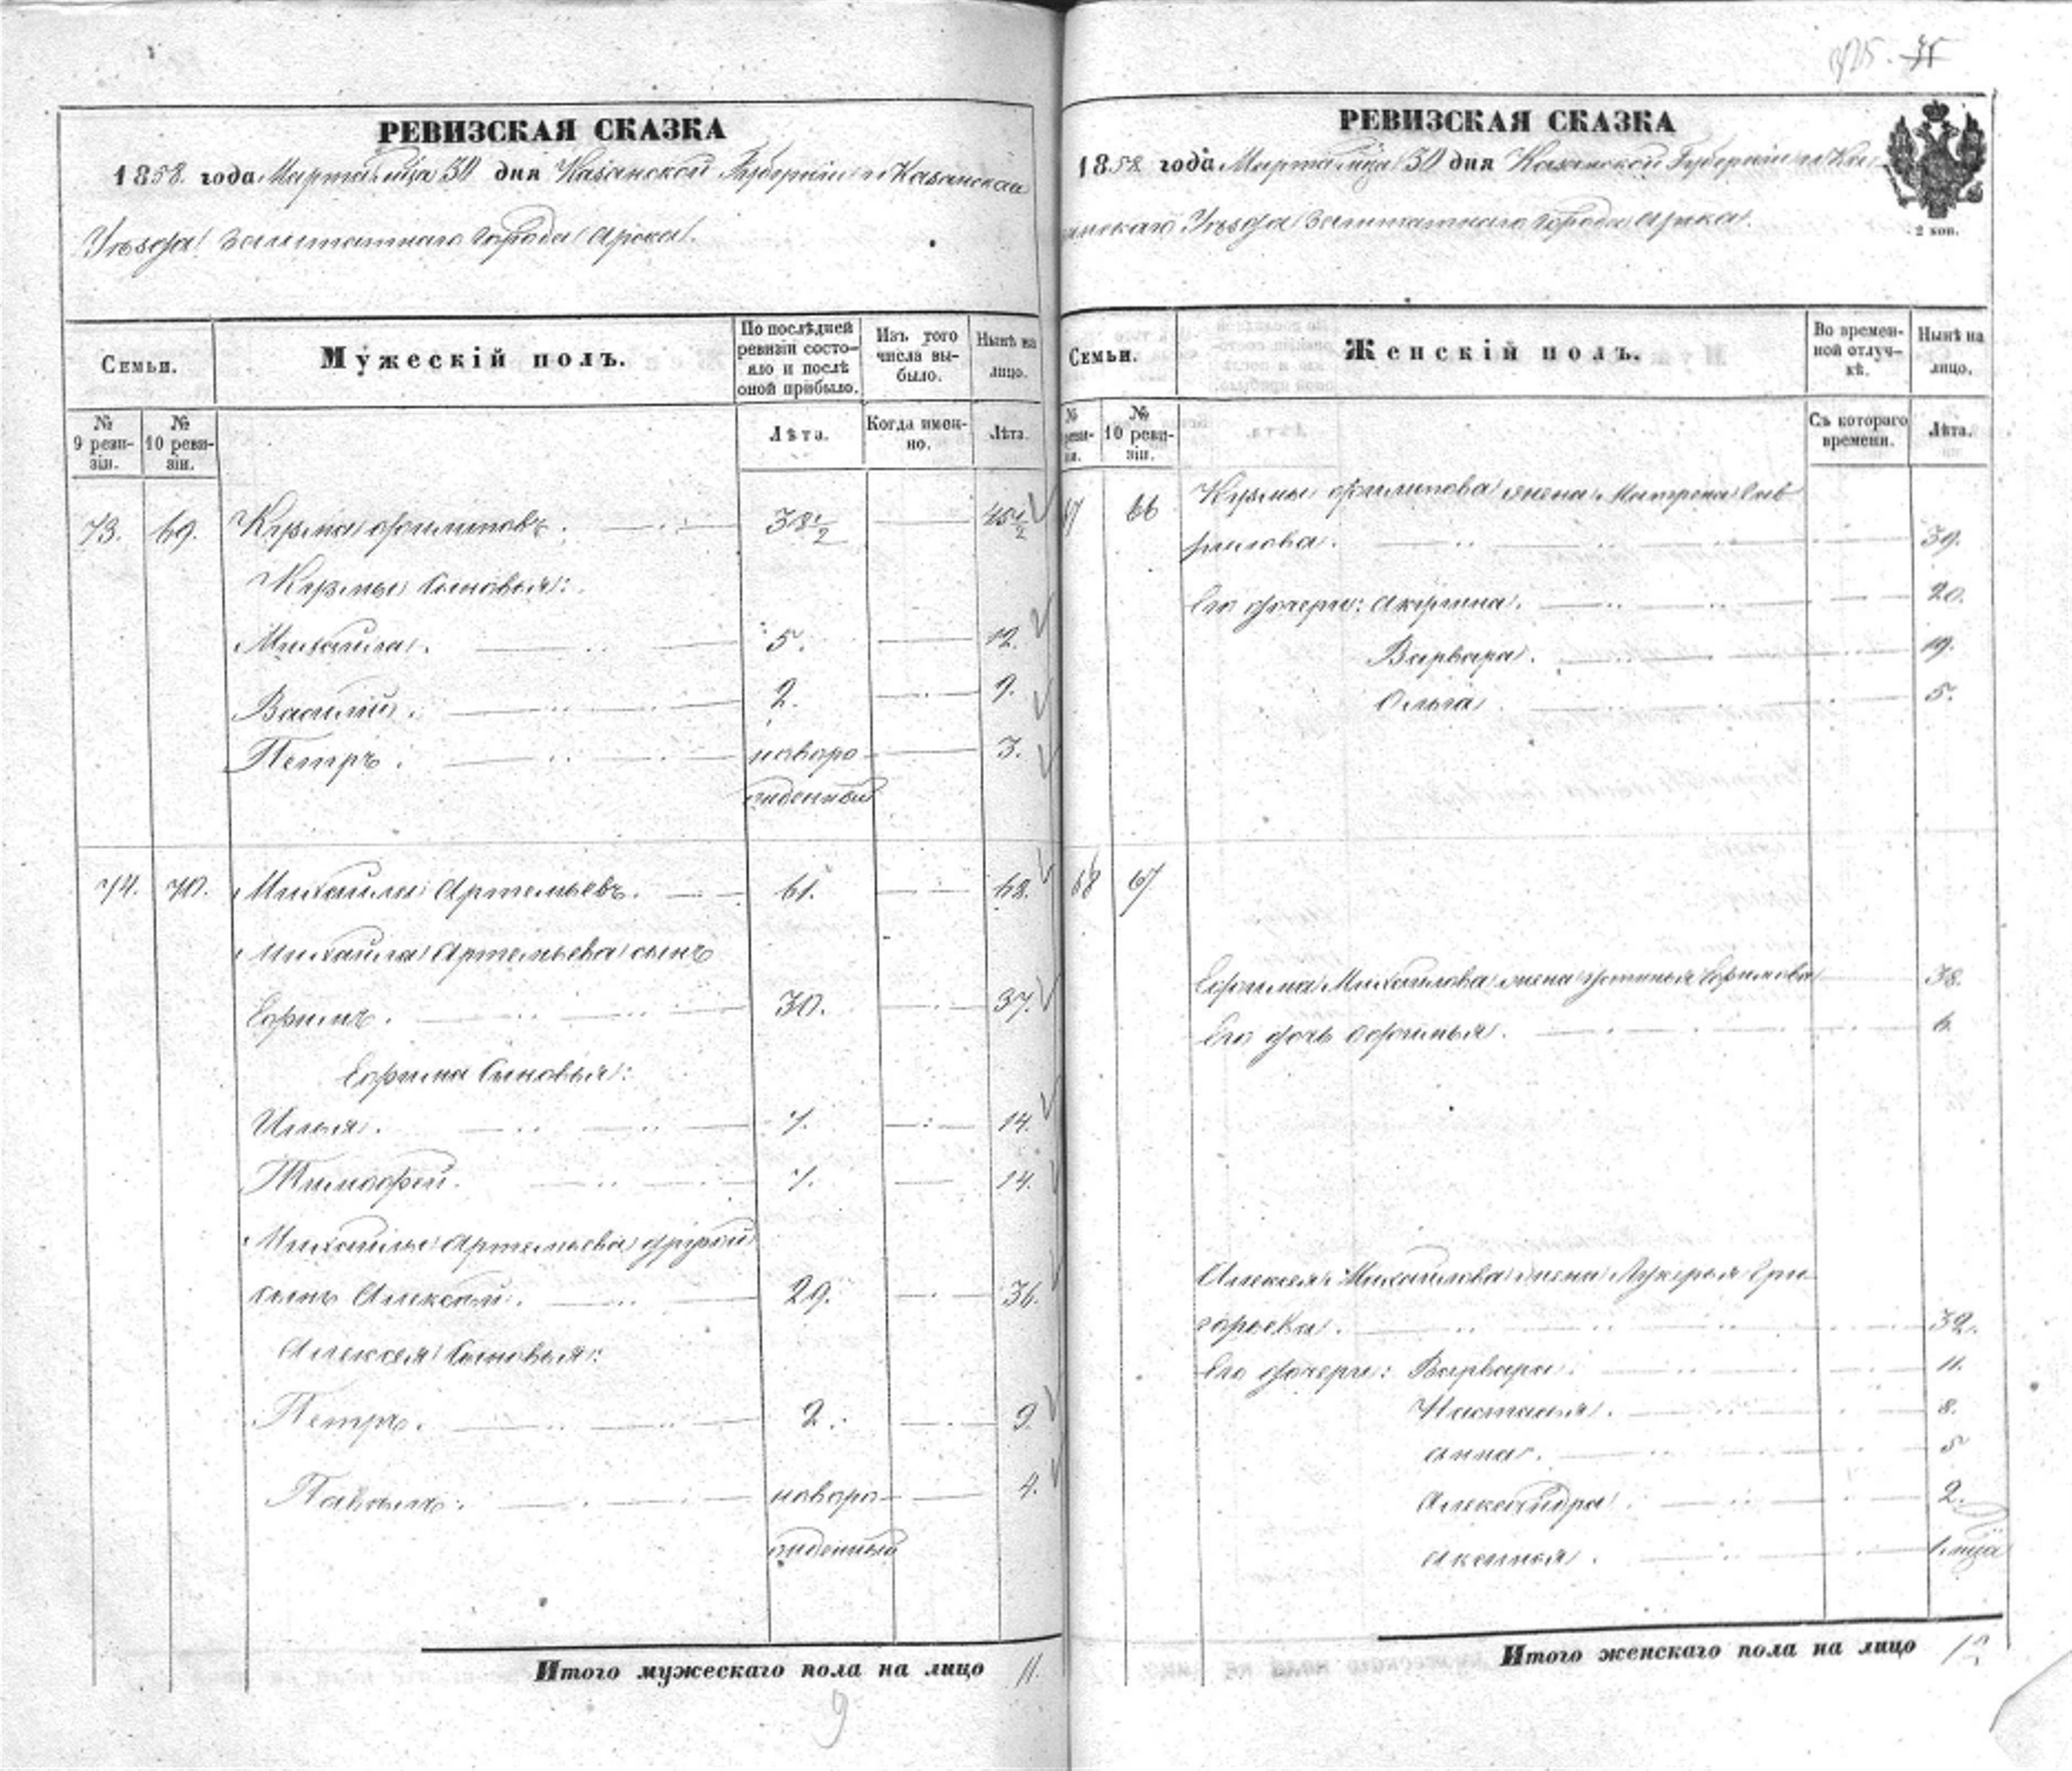 РЕВИЗСКАЯ СКАЗКА
1858 года Марта м̃ца 30 дня Казанской Губернiи и Казанскаго
Уѣзда заштатнаго города Арска.
Семьи.
Мужескiй полъ.
По послѣдней ревизiи состояло и послѣ оной прибыло.
Изъ того числа выбыло.
Нынѣ на лицо.
№ 9 ревизiи.
№ 10 ревизiи.
Лѣта.
Когда именно.
Лѣта.
73. 69. Кузма Филиповъ. 38½ 45½
Кузмы Сыновья:
Михайла. 5. 12.
Василiй. 2. 9.
Петръ. новоро- 3.
жденный
74. 70. Михайлы Артемьевъ. 61. 68.
Михайла Артемьева сынъ
Ефимъ. 30. 37.
Ефима Сыновья:
Илья. 7. 14.
Тимофей. 7. 14.
Михайлы Артемьева другой
сынъ Алексѣй. 29. 36.
Алексея Сыновья:
Петръ. 2. 9
Павелъ. новоро- 4.
жденный
Итого мужескаго пола на лицо 11.
9
РЕВИЗСКАЯ СКАЗКА
1858 года Марта м̃ца 30 дня Казанской Губернiи и Ка-
занскаго Уѣзда заштатнаго города Арска.
2 коп.
Семьи.
Женскiй полъ.
Во временной отлучкѣ.
Нынѣ на лицо.
№ ревизiи.
№ 10 ревизiи.
Съ котораго времени.
Лѣта.
67 66 Кузмы Филипова жена Матрена Гав
рилова. 39.
Его дочери: Акулина. 20.
Варвара. 19.
Ольга. 5.
68 67
Ефима Михайлова жена Устинья Ефимова 38.
Его дочь Офимья. 6
Алексея Михайлова жена Лукерья Гри
горьева. 32.
Его дочери: Варвара. 11.
Настасья. 8.
Анна. 5
Александра. 2.
Аксинья. 1 м̃ца
Итого женскаго пола на лицо 12